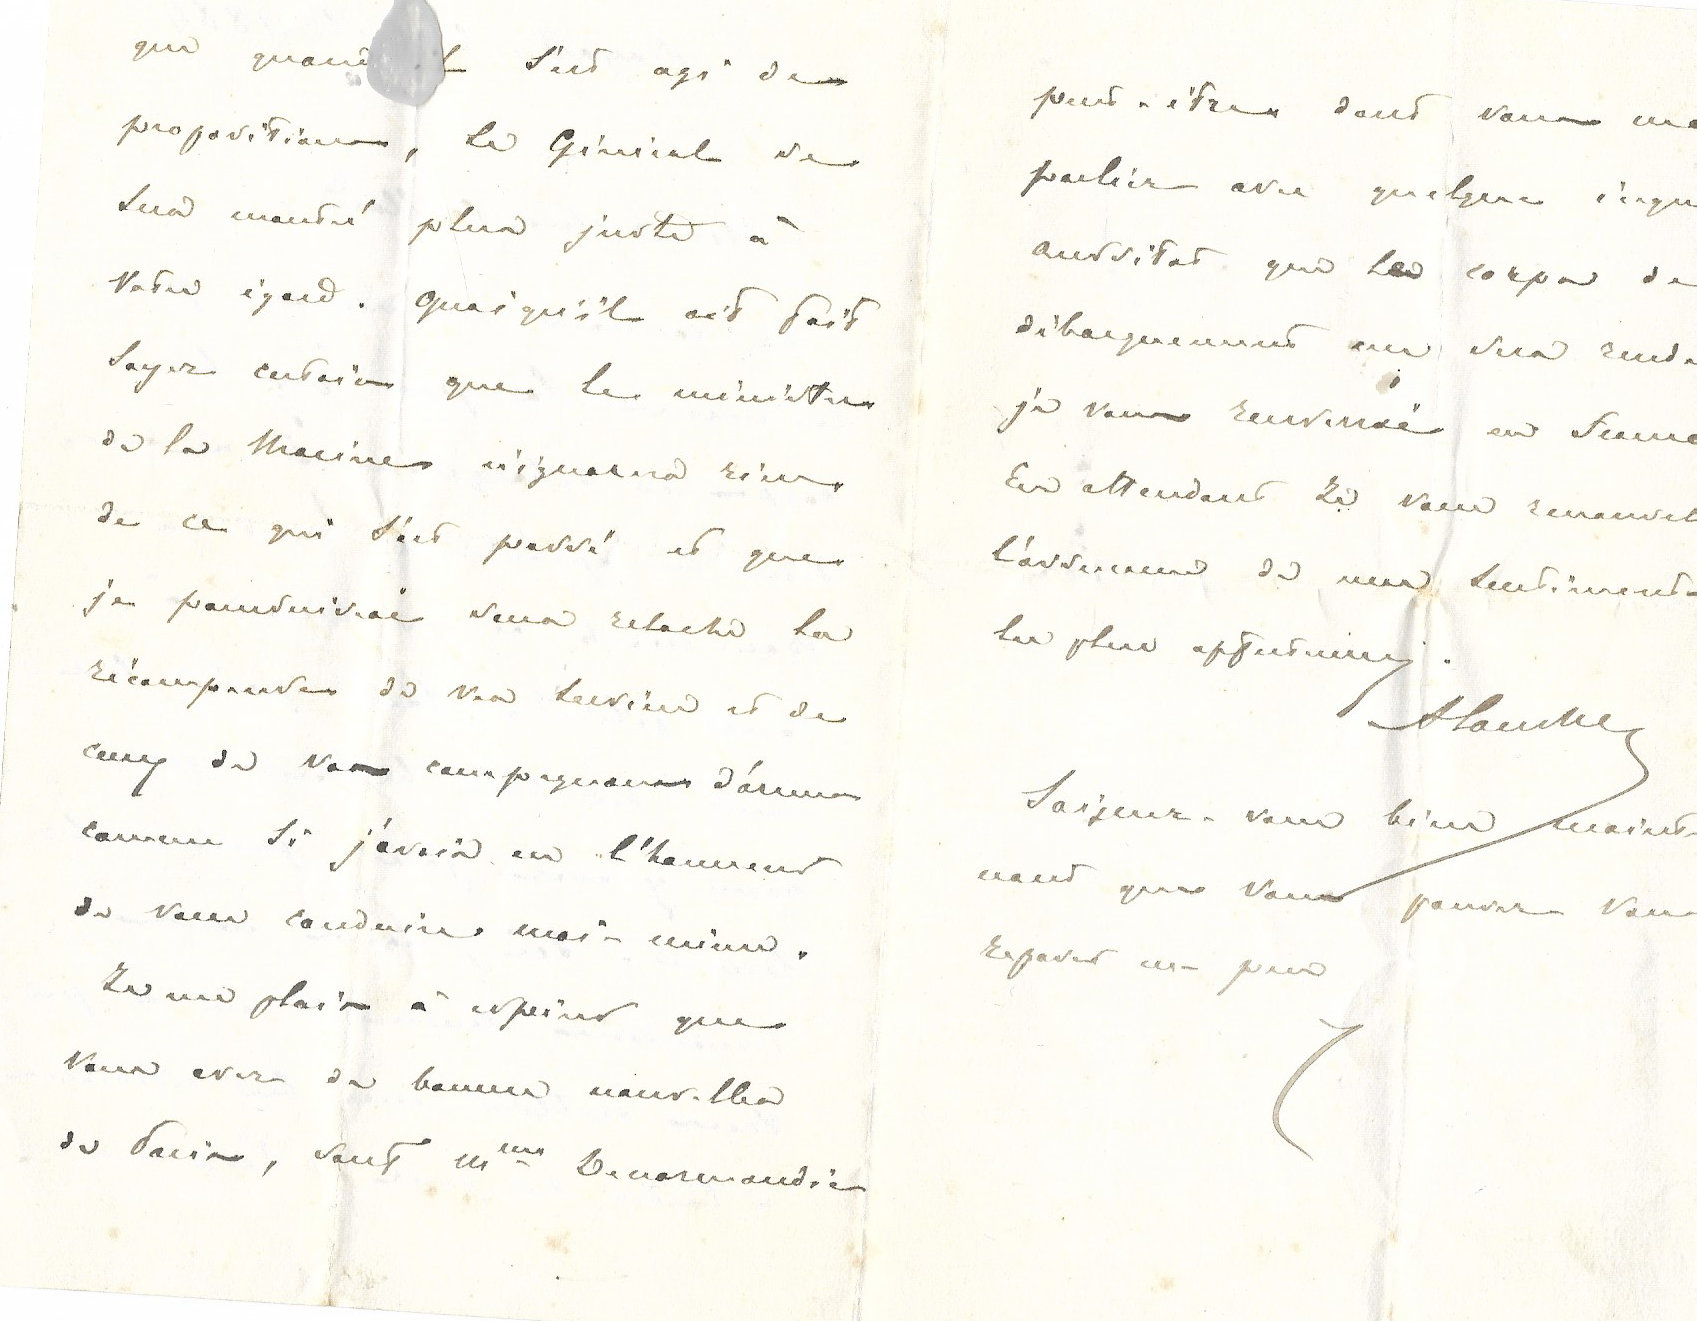 que quand il s'est agi de
propositions, le Général se
sera montré plus juste à
votre égard. Quoiqu'il ait fait
soyez certain que le ministre
de la Marine n'ignorera rien
de ce qui s'est passé et que
je poursuivrai sans relache la
récompense de vos services et de
ceux de vos compagnons d'armes
comme si j'avais eu l'honneur
de vous conduire moi-même.
Je me plais à espérer que
vous avez de bonnes nouvelles
de Paris, sauf Mme Denormandie
peut-être dont vous me
parliez avec quelque
aussitôt que le corps de
débarquement me sera
je vous renverrai en
En attendant je vous
l'assurance de mes sentiments
les plus affectueux.
Soignez-vous bien mainte-
nant que vous pouvez vous
reposer un peu